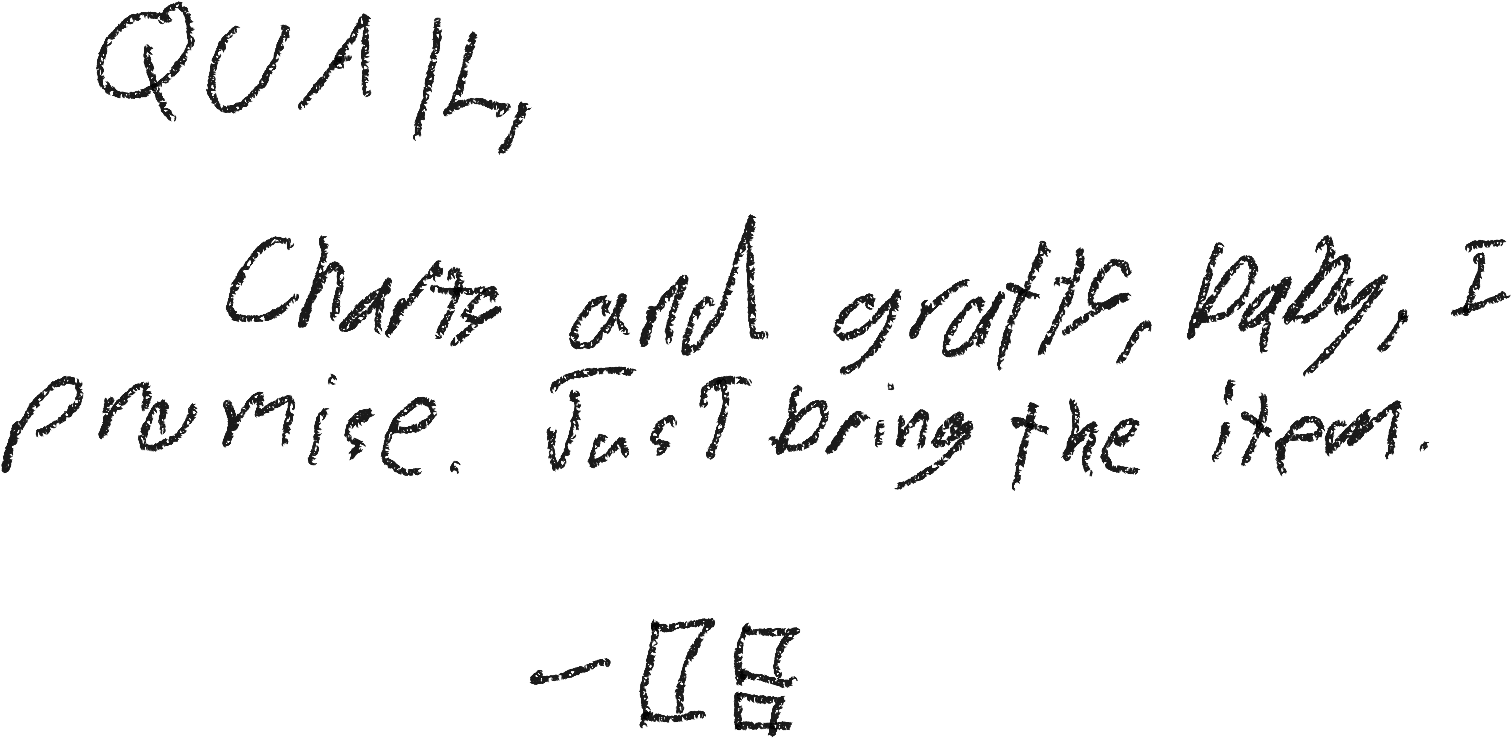 QUAIL,
Charts and graffs, baby, I
promise. Just bring the item.